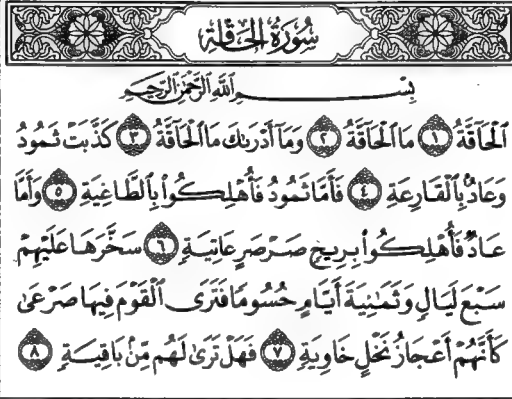 سُورَةُ الحَاقَّةِ
بِسْمِ اللَّهِ الرَّحْمَٰنِ الرَّحِيمِ
ٱلْحَآقَّةُ ١ مَا ٱلْحَآقَّةُ ٢ وَمَآ أَدْرَىٰكَ مَا ٱلْحَآقَّةُ ٣ كَذَّبَتْ ثَمُودُ
وَعَادٌۢ بِٱلْقَارِعَةِ ٤ فَأَمَّا ثَمُودُ فَأُهْلِكُوا۟ بِٱلطَّاغِيَةِ ٥ وَأَمَّا
عَادٌ فَأُهْلِكُوا۟ بِرِيحٍ صَرْصَرٍ عَاتِيَةٍ ٦ سَخَّرَهَا عَلَيْهِمْ
سَبْعَ لَيَالٍ وَثَمَٰنِيَةَ أَيَّامٍ حُسُومًا فَتَرَى ٱلْقَوْمَ فِيهَا صَرْعَىٰ
كَأَنَّهُمْ أَعْجَازُ نَخْلٍ خَاوِيَةٍ ٧ فَهَلْ تَرَىٰ لَهُم مِّنۢ بَاقِيَةٍ ٨